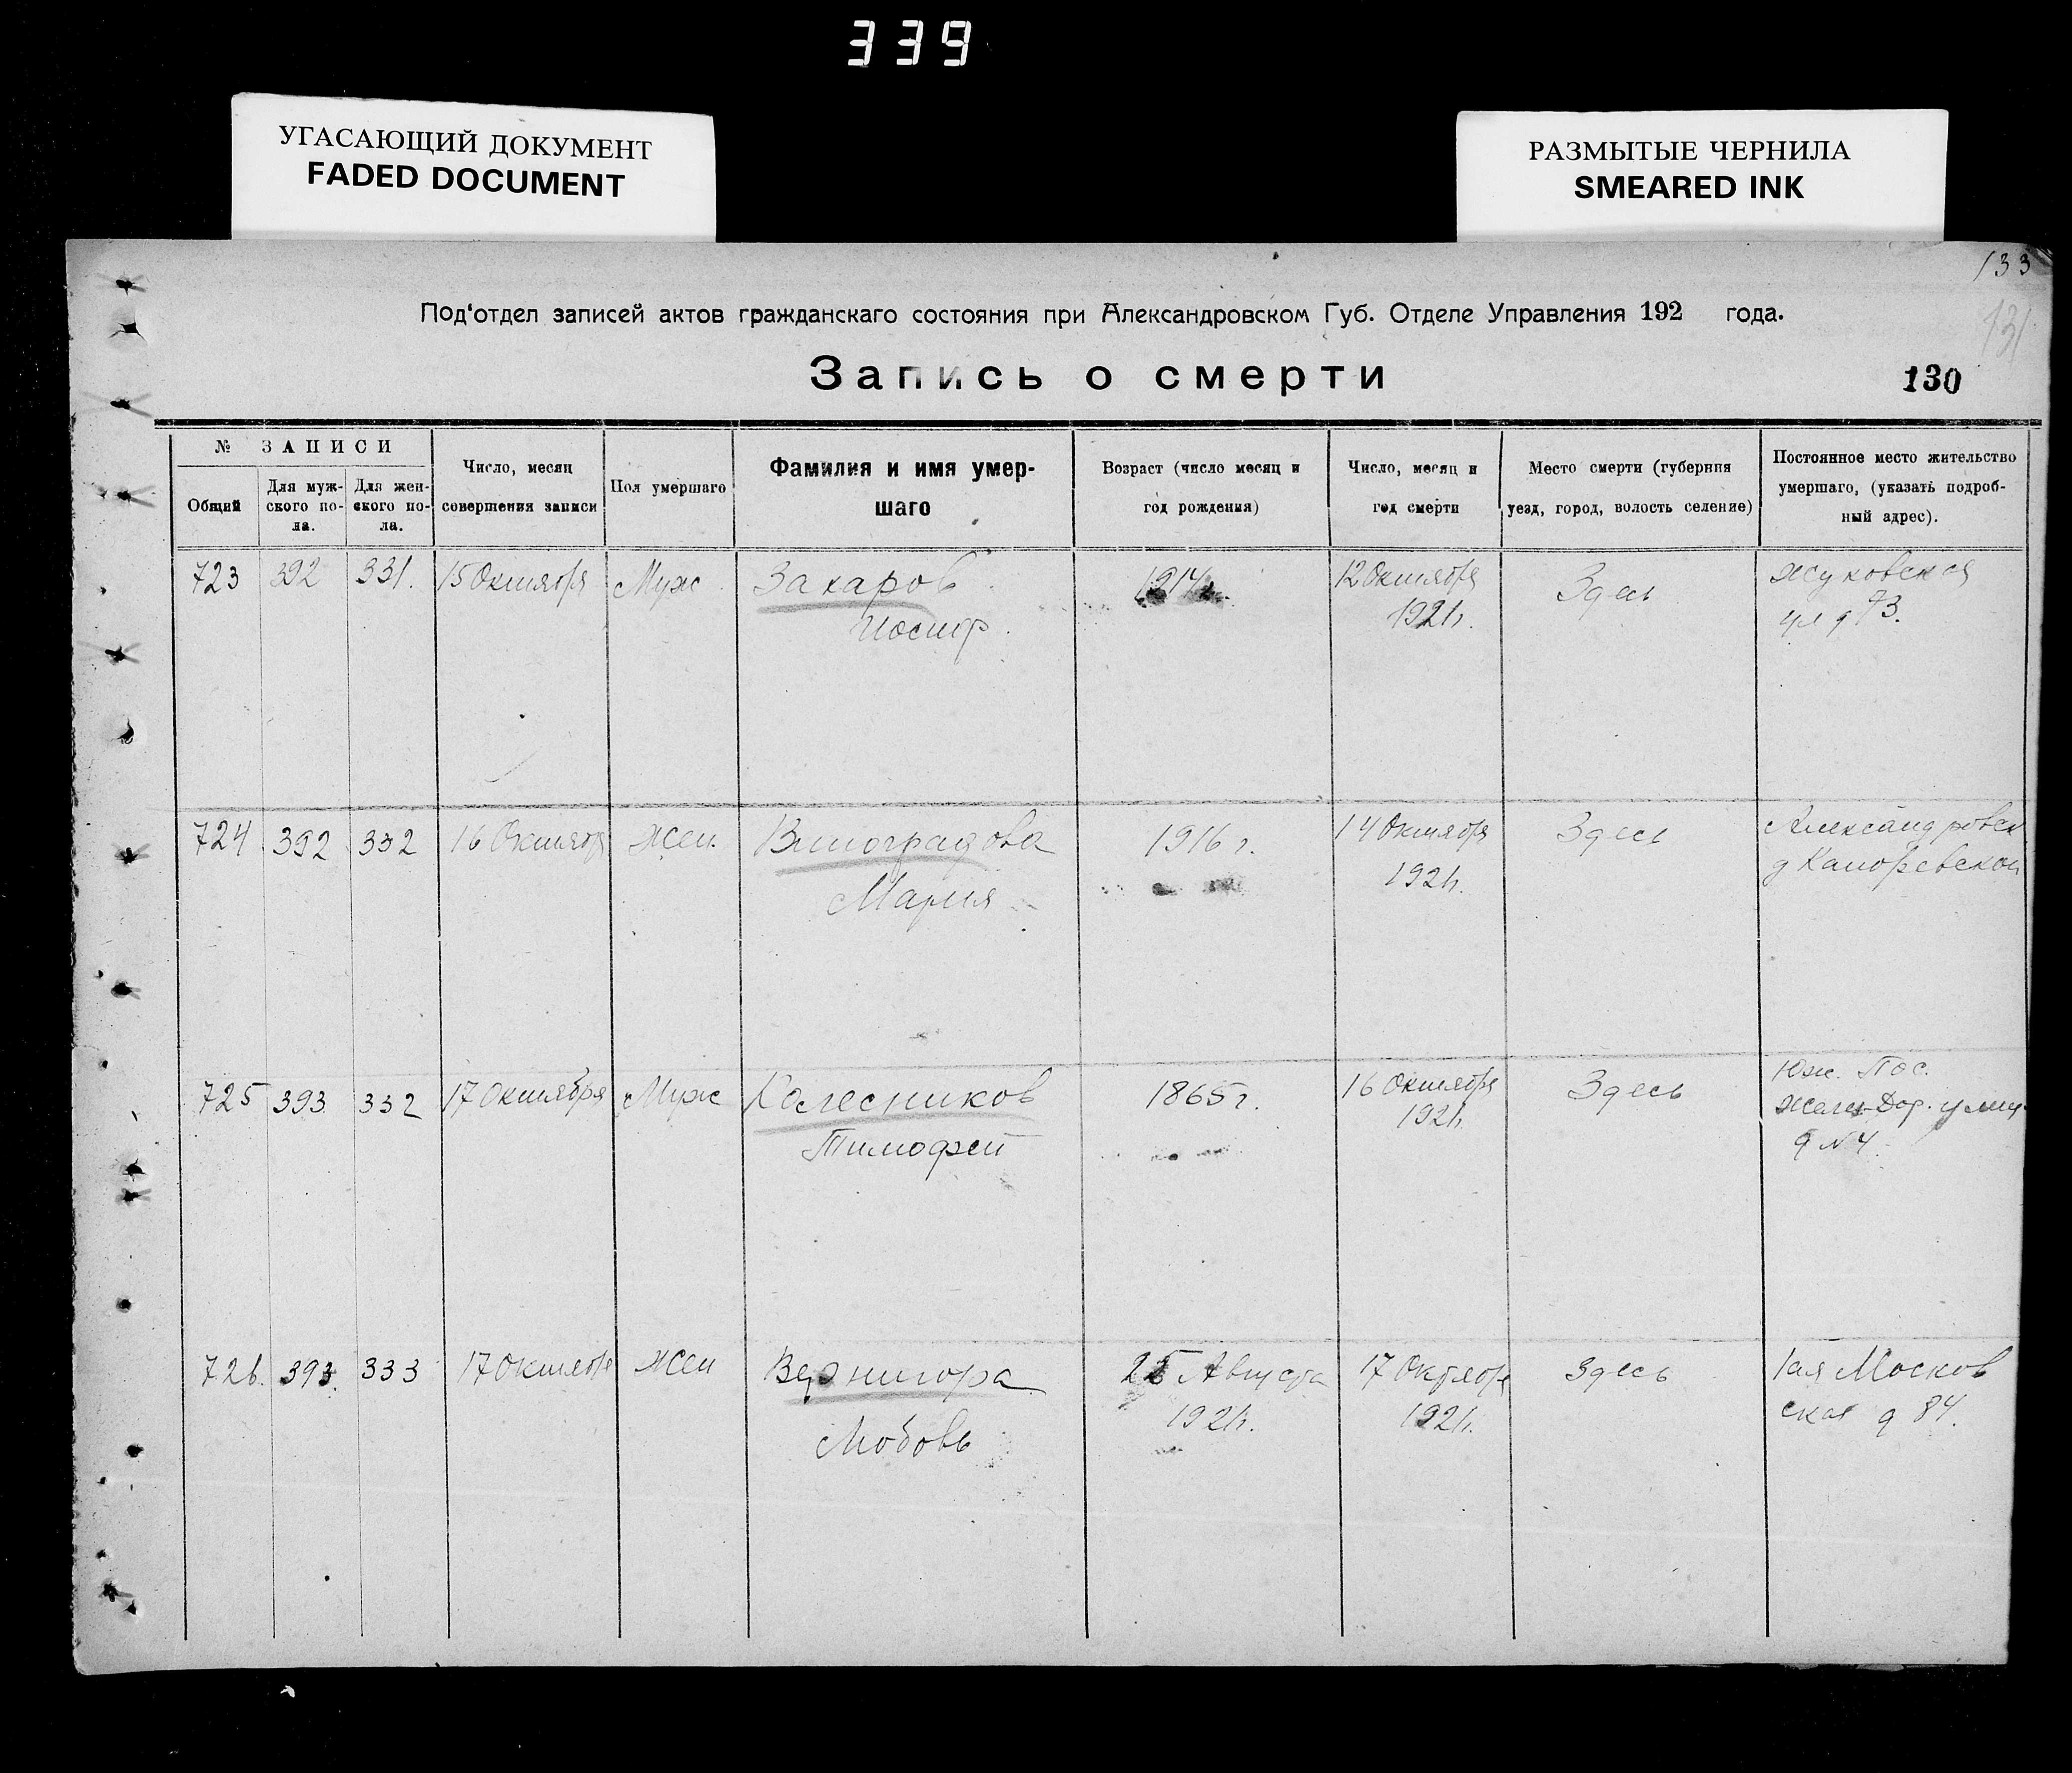 339
УГАСАЮЩИЙ ДОКУМЕНТ
FADED DOCUMENT
РАЗМЫТЫЕ ЧЕРНИЛА
SMEARED INK
133
131
Под'отдел записей актов гражданскаго состояния при Александровском Губ. Отделе Управления 192 года.
Запись о смерти
130
№ ЗАПИСИ
Общий
Для муж-
ского по-
ла.
Для жен-
ского по-
ла.
Число, месяц
совершения записи
Пол умершаго
Фамилия и имя умер-
шаго
Возраст (число месяц и
год рождения)
Число, месяц и
год смерти
Место смерти (губерния
уезд, город, волость селение)
Постоянное место жительство
умершаго, (указать подроб-
ный адрес).
723 392 331. 15 Октября Муж Захаров 1914 12 Октября Здесь Жуковская
Иосиф. 1921г. ул д 73.
724 392 332 16 Октября Жен. Виноградова 1916 г. 14 Октября Здесь Александровск
Мария 1921г. д
725 393 332 17 Октября Муж Колесников 1865 г. 16 Октября Здесь Юж. Пос.
Тимофей 1921г. Желез-Дор. улиц
д № 4
726. 393. 333 17 Октября Жен Вернигора 25 Августа 17 Октября Здесь 1ая Москов
Любовь 1921г. 1921г. ская д 84.